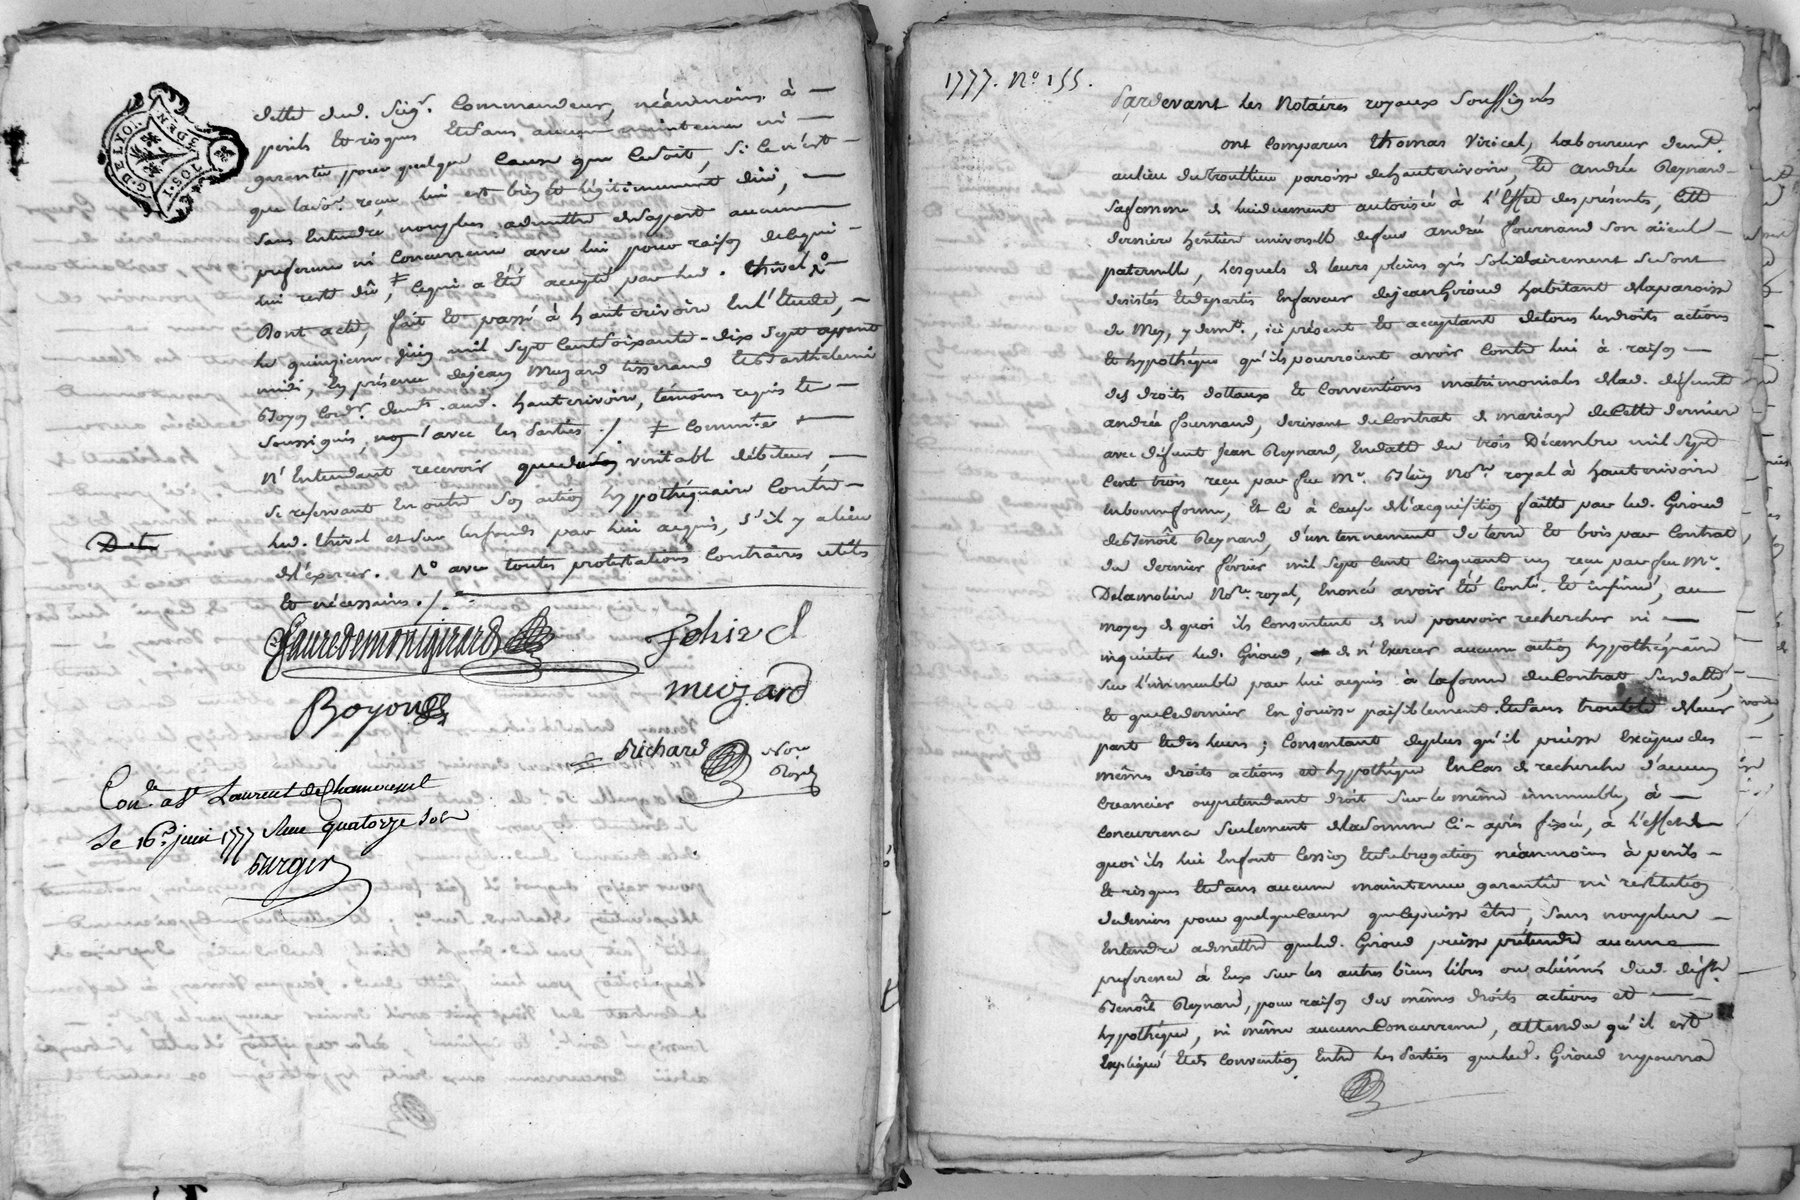 G. DE LYON
dette dud. Seigr. Commandeur, néanmoins à
perils et risques et sans aucune maintenue ni
garentie pour quelque cause que ce soit, si ce n'est
que lad. so. reçue lui est bien et légitimement dûe,
sans entendre non plus admettre de sa part aucune
preference ni concurrence avec lui pour raison de ce qui
lui reste dû, ≠ ce qui a été accepté par led. thivel
Dont acte, fait et passé à hauterivoire en l'Etude,
le quinzieme juin mil sept cent soixante-dix sept appent
midi, en présence de jean Muzard tisserand et Barthelemi
Boyon cordr. demts. aud. hauterivoire, témoins requis et
soussignés, avec les Parties ./. ≠
n'entendant recevoir que de son veritable débiteur,
se reservant en outre son action hypothéquaire contre
led. thivel et sur les fonds par lui acquis, s'il y a lieu
de l'éxercer. avec toutes protestations contraires utiles
et nécessaires ./.
Faure de montgirard
thivel
Boyon
muzard
Richard Nore
Royal
Conle. à St Laurent de Chamousset
Le 16e. juin 1777 Reçu quatorze sols
1777. No. 155.
Pardevant les Notaires royaux soussignés
ont comparus thomas Viricel, laboureur demt.
au lieu du trouttieu paroisse de hauterivoire, et andrée Reynard
sa femme de lui duement autorisée à l'Effet des présents, cette
derniere héritiere universelle de feue andrée fournand son aïeule
paternelle, lesquels de leurs pleins grés solidairement se sont
desistés et departis en faveur de jean Giroud habitant de la paroisse
de Mey, y demt., ici présent et acceptant de tous les droits actions
et hypothéque qu'ils pourroient avoir contre lui à raison
des droits dottaux et conventions matrimoniales de lad. défunte
andrée fournand, dérivant du contrat de mariage de cette derniere
avec défunt jean Reynard, en datte du trois Décembre mil sept
cent trois reçu par feu Mr. Blein Nore. royal à hauterivoire
en bonne forme, et ce à cause de l'acquisition faitte par led. Giroud
de Benoît Reynard, d'un tennement de terre et bois par contrat
du dernier février mil sept cent cinquante un reçu par feu Mr.
Delamoliere Nore. royal, énoncé avoir été contlé. et insinué, au
moyen de quoi ils consentent de ne pouvoir rechercher ni
inquieter led. Giroud, de n'éxercer aucune action hypothéquaire
sur l'immeuble par lui acquis à la forme du contrat susdatté,
et que ce dernier en jouisse paisiblement et sans trouble de leur
part et des leurs; consentant deplus qu'il puisse exciper des
mêmes droits actions et hypothéque en cas de recherche d'aucun
creancier ou pretendant droit sur le même immeuble, à
concurrence seulement de la somme ci-après fixée, à l'effet de
quoi ils lui en font cession et subrogation néanmoins à perils
et risques et sans aucune maintenue garantie ni restitution
de deniers pour quelque cause que ce puisse être, sans non plus
entendre admettre que led. Giroud puisse prétendre aucune
preference à eux sur les autres biens libres ou aliénés dud. défunt
Benoît Reynard, pour raison des mêmes droits actions et
hypothéque, ni même aucune concurrence, attendu qu'il est
expliqué et de convention entre les Parties que led. Giroud ne pourra